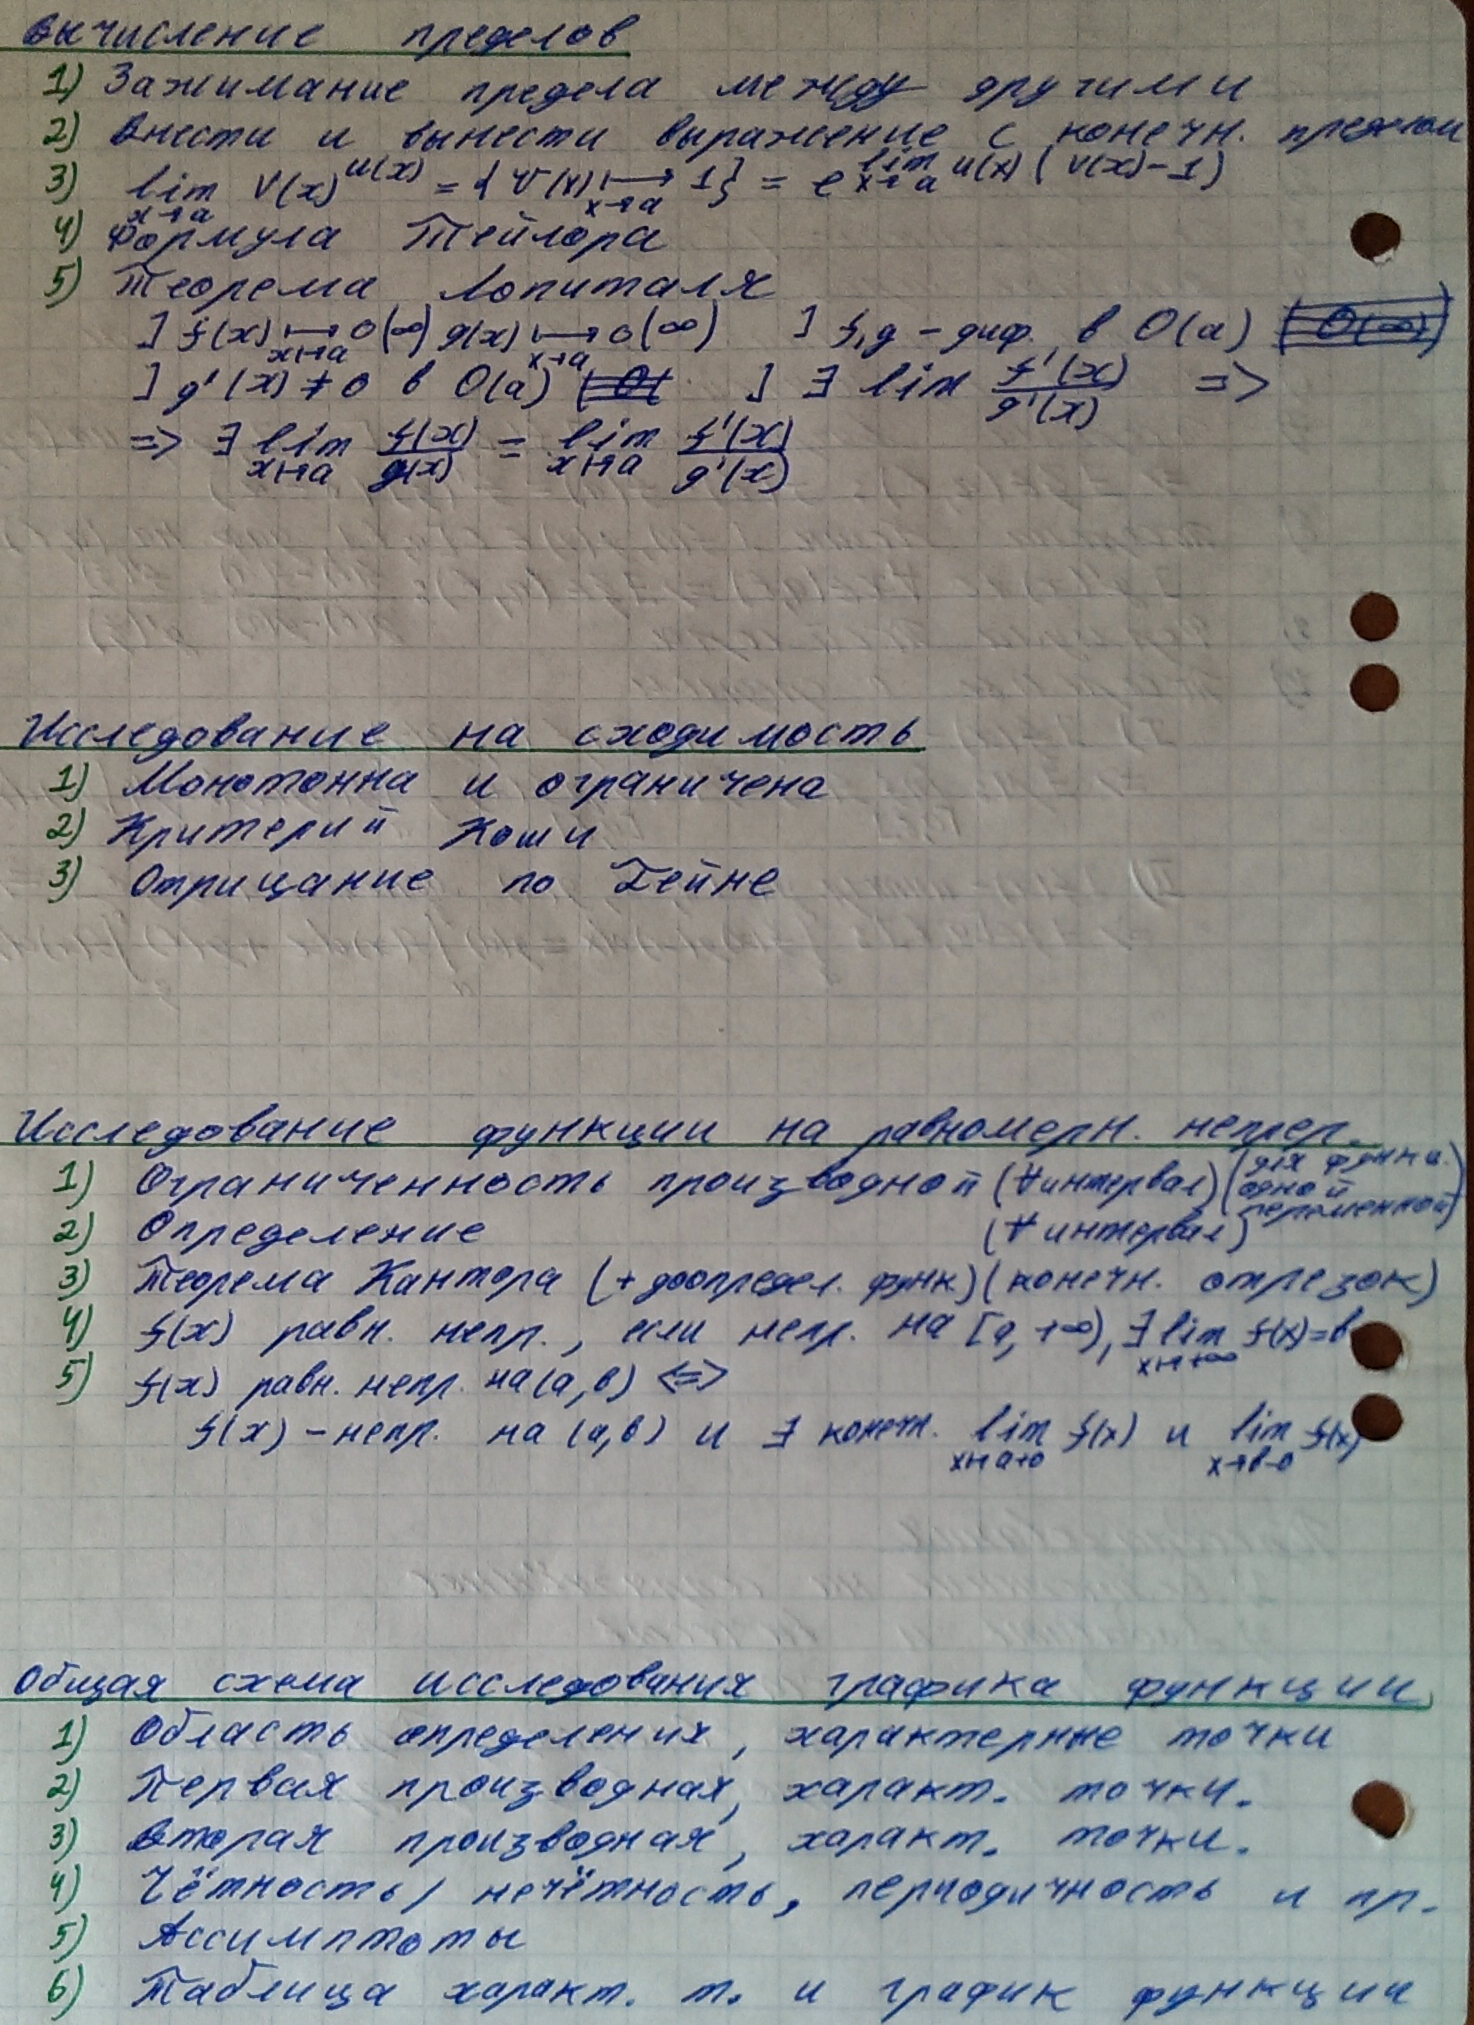 Вычисление пределов
1) Зажимание предела между другими
2) Внести и вынести выражение с конечн. пределом
3) lim_{x→a} V(x)^{u(x)} = {V(x) ↦_{x→a} 1} = e^{lim_{x→a} u(x)(V(x)-1)}
4) Формула Тейлора
5) Теорема Лопиталя
] f(x) ↦_{x→a} 0(∞) g(x) ↦_{x→a} 0(∞) ] f,g - диф. в O(a)
] g'(x) ≠ 0 в O(a) ] ∃ lim f'(x)/g'(x) =>
=> ∃ lim_{x→a} f(x)/g(x) = lim_{x→a} f'(x)/g'(x)
Исследование на сходимость
1) Монотонна и ограничена
2) Критерий Коши
3) Отрицание по Гейне
Исследование функции на равномерн. непрер.
1) Ограниченность производной (∀ интервал) (для функц. одной переменной)
2) Определение (∀ интервал)
3) Теорема Кантора (+ доопредел. функ.) (конечн. отрезок)
4) f(x) равн. непр., если непр. на [a, +∞), ∃ lim_{x→+∞} f(x)=b
5) f(x) равн. непр. на (a,b) <=>
f(x) - непр. на (a,b) и ∃ конечн. lim_{x→a+0} f(x) и lim_{x→b-0} f(x)
Общая схема исследования графика функции
1) Область определения, характерные точки
2) Первая производная, характ. точки.
3) Вторая производная, характ. точки.
4) Чётность/нечётность, периодичность и пр.
5) Ассимптоты
6) Таблица характ. т. и график функции